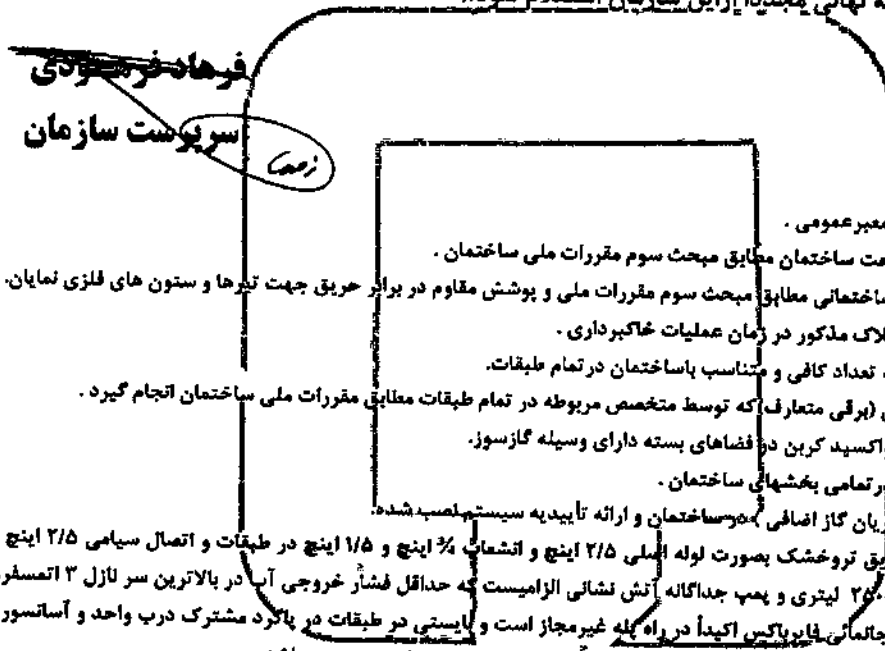 نهائی مجدداً ازاین سازمان استعلام
فرهاد فرهودی
سرپرست سازمان
معبرعمومی .
ساختمان مطابق مبحث سوم مقررات ملی ساختمان .
ساختمانی مطابق مبحث سوم مقررات ملی و پوشش مقاوم در برابر حریق جهت تیرها و ستون های فلزی نمایان.
پلاک مذکور در زمان عملیات خاکبرداری .
تعداد کافی و متناسب باساختمان درتمام طبقات.
(برقی متعارف)که توسط متخصص مربوطه در تمام طبقات مطابق مقررات ملی ساختمان انجام گیرد .
اکسید کربن در فضاهای بسته دارای وسیله گازسوز.
درتمامی بخشهای ساختمان .
جریان گاز اضافی در ساختمان و ارائه تأییدیه سیستم نصب شده.
تروخشک بصورت لوله اصلی ۲/۵ اینچ و انشعاب ¾ اینچ و ۱/۵ اینچ در طبقات و اتصال سیامی ۲/۵ اینچ
لیتری و پمپ جداگانه آتش نشانی الزامیست که حداقل فشار خروجی آب در بالاترین سر نازل ۳ اتمسفر
جانمائی فایرباکس اکیداً در راه پله غیرمجاز است و بایستی در طبقات در پاگرد مشترک درب واحد و آسانسور